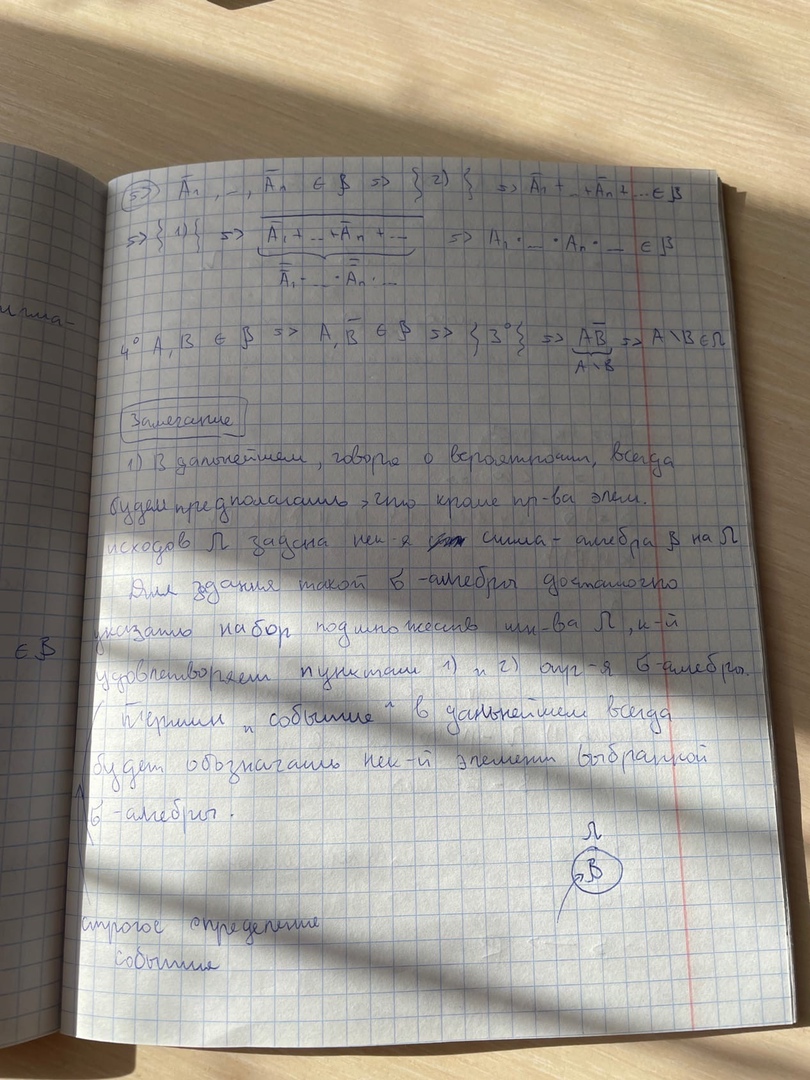 игма-
∈ β
=> Ā₁, ..., Āₙ ∈ β => { 2) } => Ā₁ + ... + Āₙ + ... ∈ β
=> { 1) } => \overline{Ā₁ + ... + Āₙ + ...} => A₁ · ... · Aₙ · ... ∈ β
\overline{Ā₁} · ... · \overline{Āₙ} · ...
4° A, B ∈ β => A, B̄ ∈ β => { 3° } => AB̄ => A \ B ∈ Ω
A \ B
Замечание
1) В дальнейшем, говоря о вероятности, всегда
будем предполагать, что кроме пр-ва элем.
исходов Ω задана нек-я сигма-алгебра β на Ω
Для здания такой σ-алгебры достаточно
указать набор подмножеств мн-ва Ω, к-й
удовлетворяет пунктам 1) и 2) опр-я σ-алгебры.
Термин „событие“ в дальнейшем всегда
будет обозначать нек-й элемент выбранной
σ-алгебры.
Ω
β
строгое определение
события